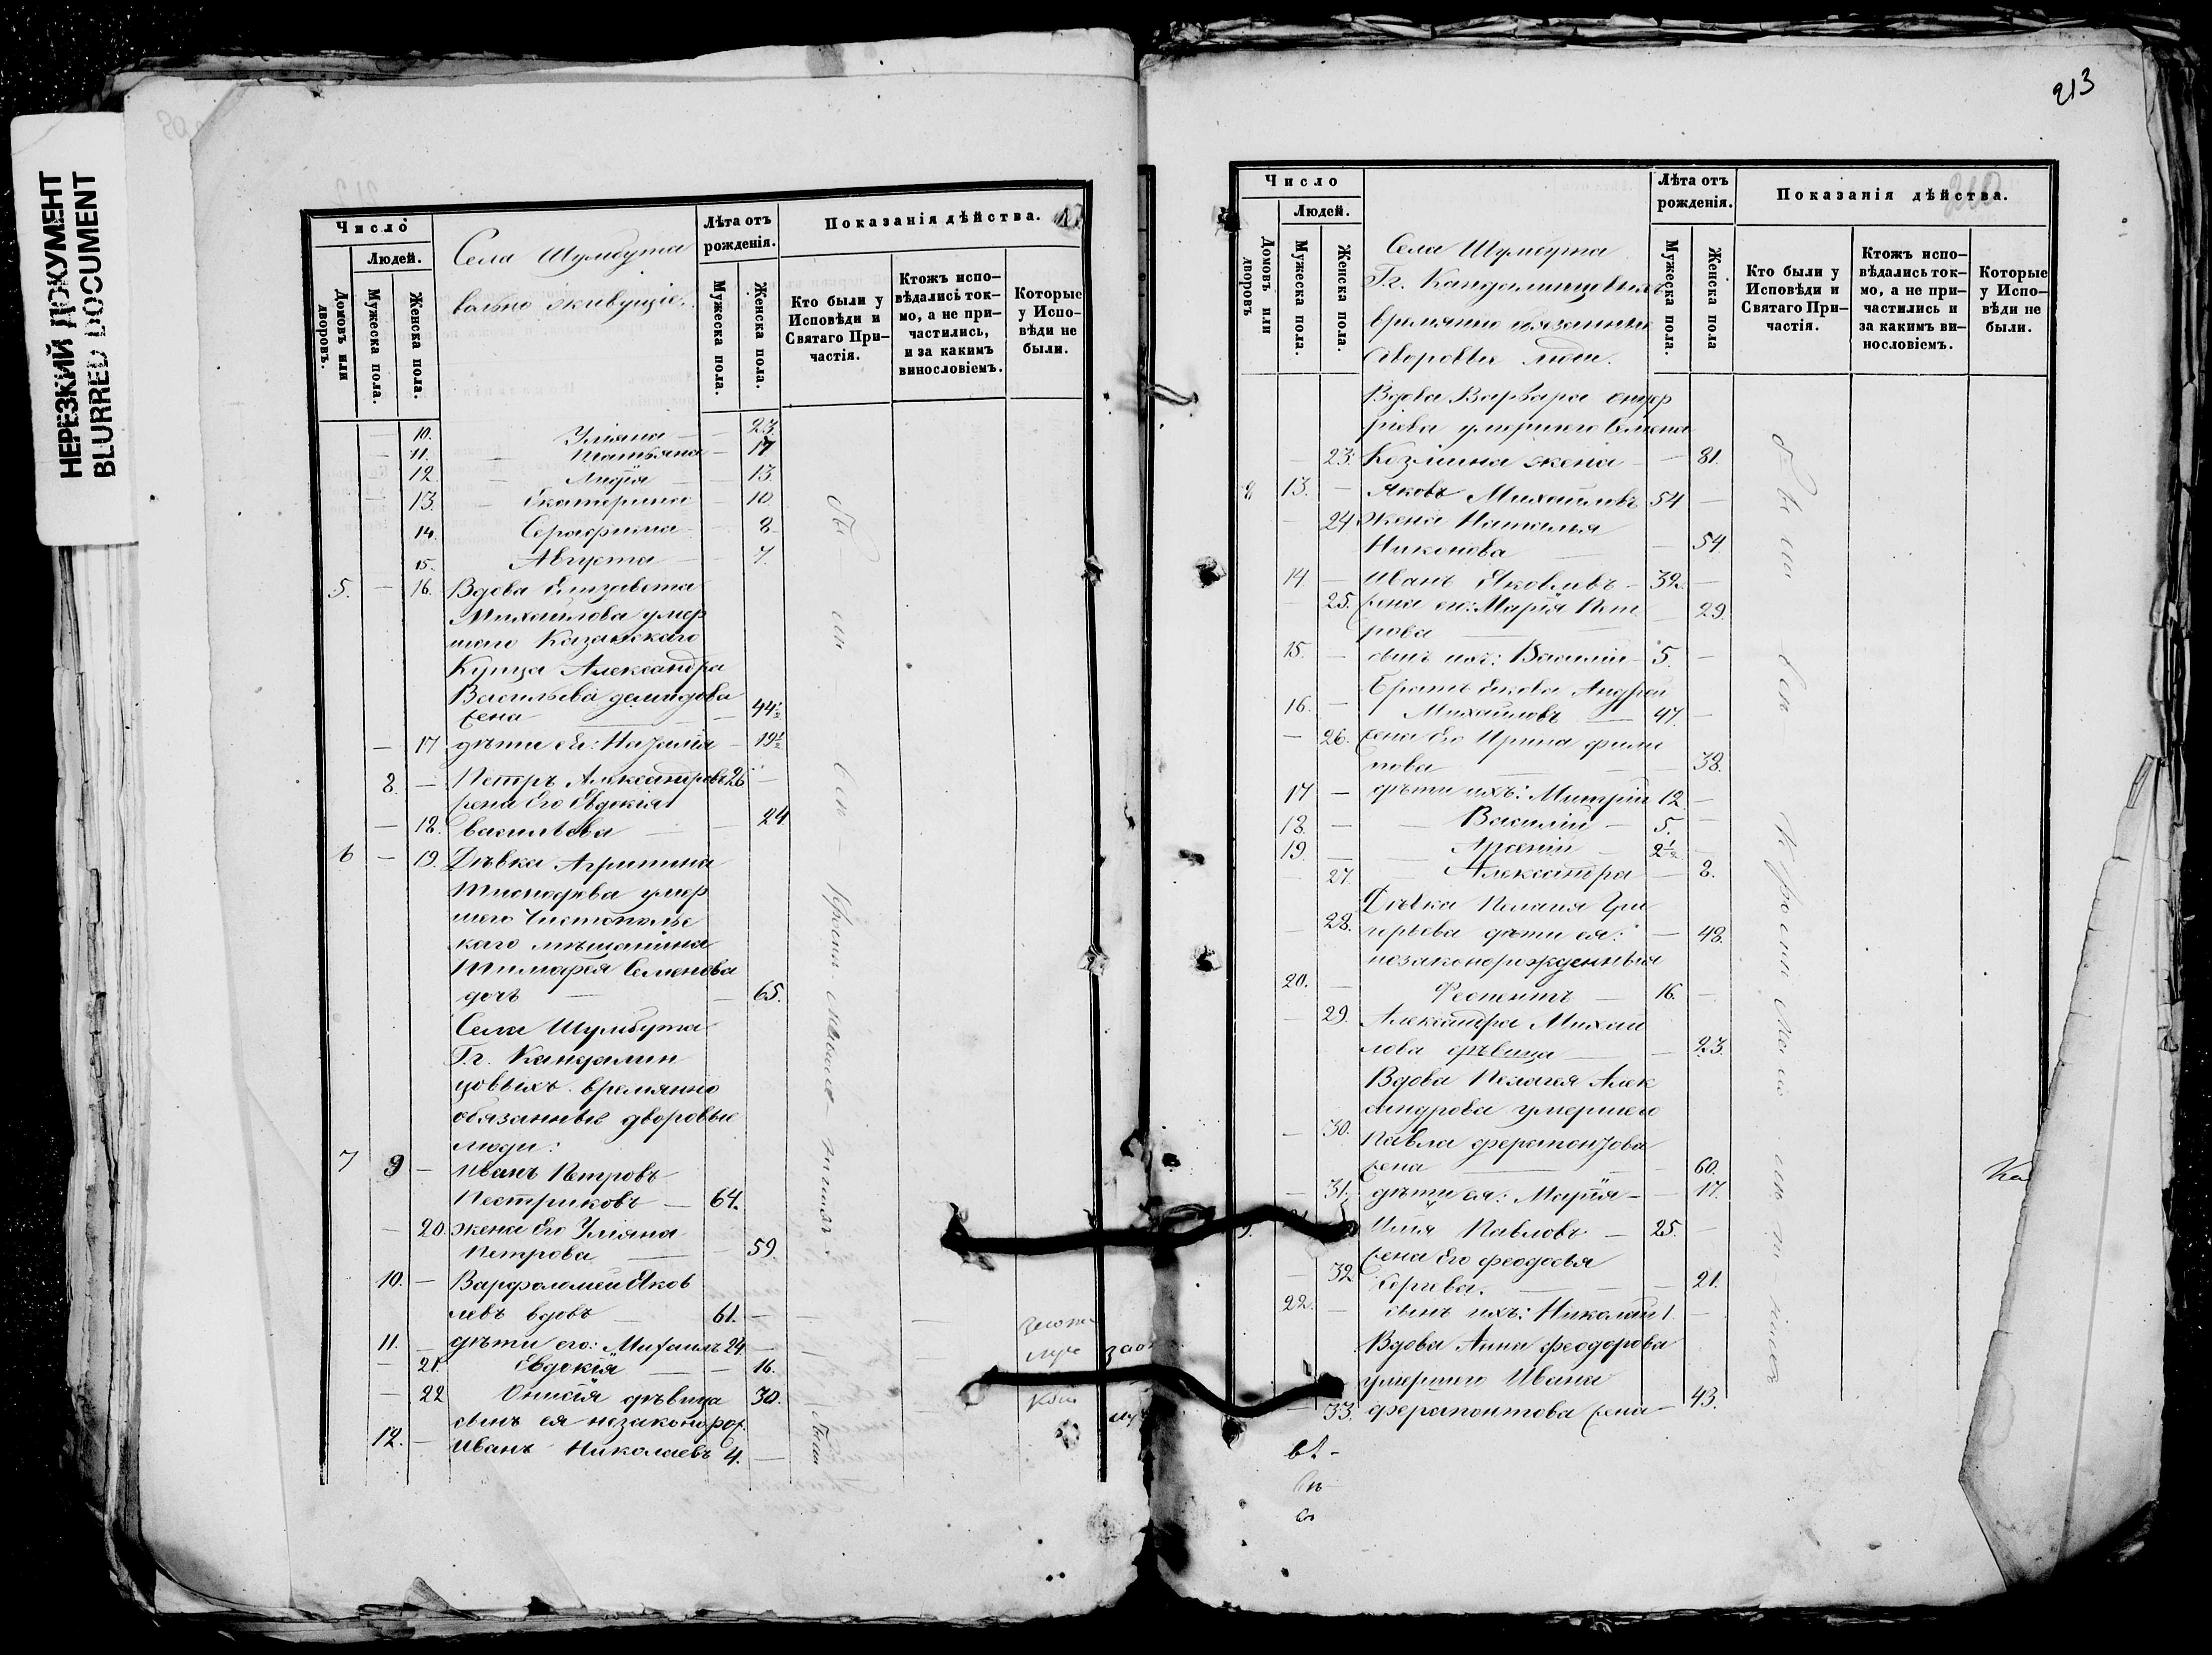 НЕРЕЗКИЙ ДОКУМЕНТ
BLURRED DOCUMENT
Число
Людей.
Домовъ или дворовъ.
Мужеска пола.
Женска пола.
Села Шумбута
вольно живущіе.
Лѣта отъ рожденія.
Мужеска пола.
Женска пола.
Показанія дѣйства.
Кто были у Исповѣди и Святаго Причастія.
Ктожъ исповѣдались токмо, а не причастились, и за какимъ винословіемъ.
Которые у Исповѣди не были.
10. Уліяна — 23.
11. Татьяна — 17
12. Лидія — 13.
13. Екатерина — 10
14. Серафима — 8
15. Августа — 7.
5. — 16. Вдова Елизавета
Михайлова умер
шаго Казанскаго
Купца Александра
Васильева Демидова
жена — 44½
— 17 дѣти ея: Наталія — 19½
8. — Петръ Александровъ 26 —
жена Его Евдокія
— 18. Васильева — 24
6 — 19. Дѣвка Агрипина
Тимофеева умер
шаго Чистопольс
каго мѣщанина
Тимофея Семенова
дочь — 65.
Села Шумбута
Г.г. Кандалин
цовыхъ времянно
обязанные дворовые
люди:
7 9 — Иванъ Петровъ
Пестриковъ — 64.
— 20. жена Его Уліяна
Петрова — 59.
10. — Варфоломей Яков
левъ вдовъ 61. —
11. — дѣти его: Михаилъ 24. —
— 21. Евдокія — 16.
— 22 Онисія дѣвица 30.
сынъ ея незаконорож.
12. — Иванъ Николаевъ 4. —
213
Число
Людей.
Домовъ или дворовъ
Мужеска пола.
Женска пола.
Села Шумбута
Г.г. Кандалинцовыхъ
времянно обязанные
дворовые люди.
Лѣта отъ рожденія.
Мужеска пола.
Женска пола
Показанія дѣйства.
Кто были у Исповѣди и Святаго Причастія.
Ктожъ исповѣдались токмо, а не причастились и за какимъ винословіемъ.
Которые у Исповѣди не были.
Вдова Варвара
умершаго Семена
— 23. Козмина жена — 81.
8 13. — Яковъ Михайловъ 54 —
— 24 жена Наталья
Никонова — 54
14 — Иванъ Яковлевъ — 32. —
— 25. жена ег: Марія Пет
рова — 29.
15. — сынъ ихъ: Василій — 5. —
Братъ Якова Андрей
16. — Михайловъ — 47. —
— 26. жена Его Ирина Фили
пова — 38.
17 — дѣти ихъ: Митрій 12. —
18. — Василій — 5. —
19. — Арсеній 2½ —
— 27. Александра — 8.
Дѣвка Пелагея Гри
— 28. горьева дѣти ея: — 48.
незаконорожденныя
20. — Феоктистъ — 16. —
— 29. Александра Михай
лова дѣвица — 23.
Вдова Пелагея Алек
сандрова умершаго
— 30. Павла Ферапонтова
жена — 60.
— 31. дѣти ея: Марія — 17.
9. 21 Илія Павловъ — 25. —
жена Его Феодосья
— 32 Сергева. — 21.
22. — сынъ ихъ: Николай 1 —
Вдова Анна Феодорова
умершаго Ивана
— 33. Ферапонтова жена — 43.